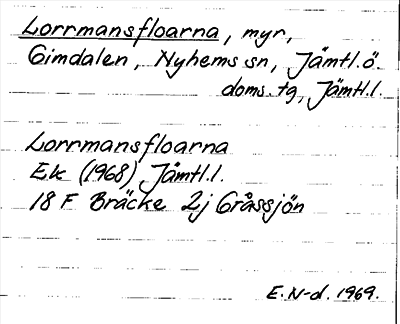 Lorrmansfloarna, myr,
Gimdalen, Nyhems sn, Jämtl.ö.
doms. tg, Jämtl.l.
Lorrmansfloarna
Ek (1968) Jämtl.l.
18 F Bräcke 2j Gråssjön
E.N-d. 1969.